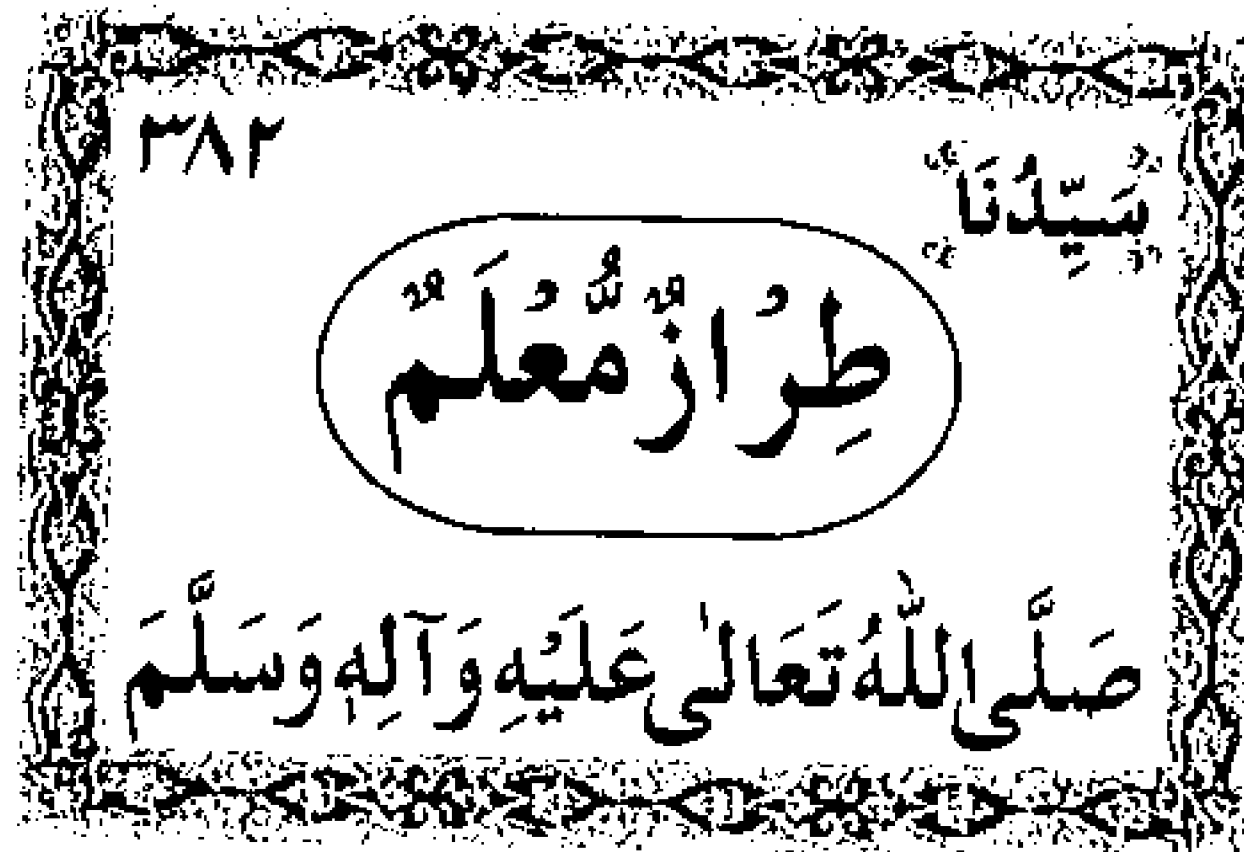 ٣٨٢
سَيِّدُنَا
طِرْازٌ مُّعْلَمٌ
صَلَّى اللّٰهُ تَعَالٰى عَلَيْهِ وَآلِهٖ وَسَلَّمَ